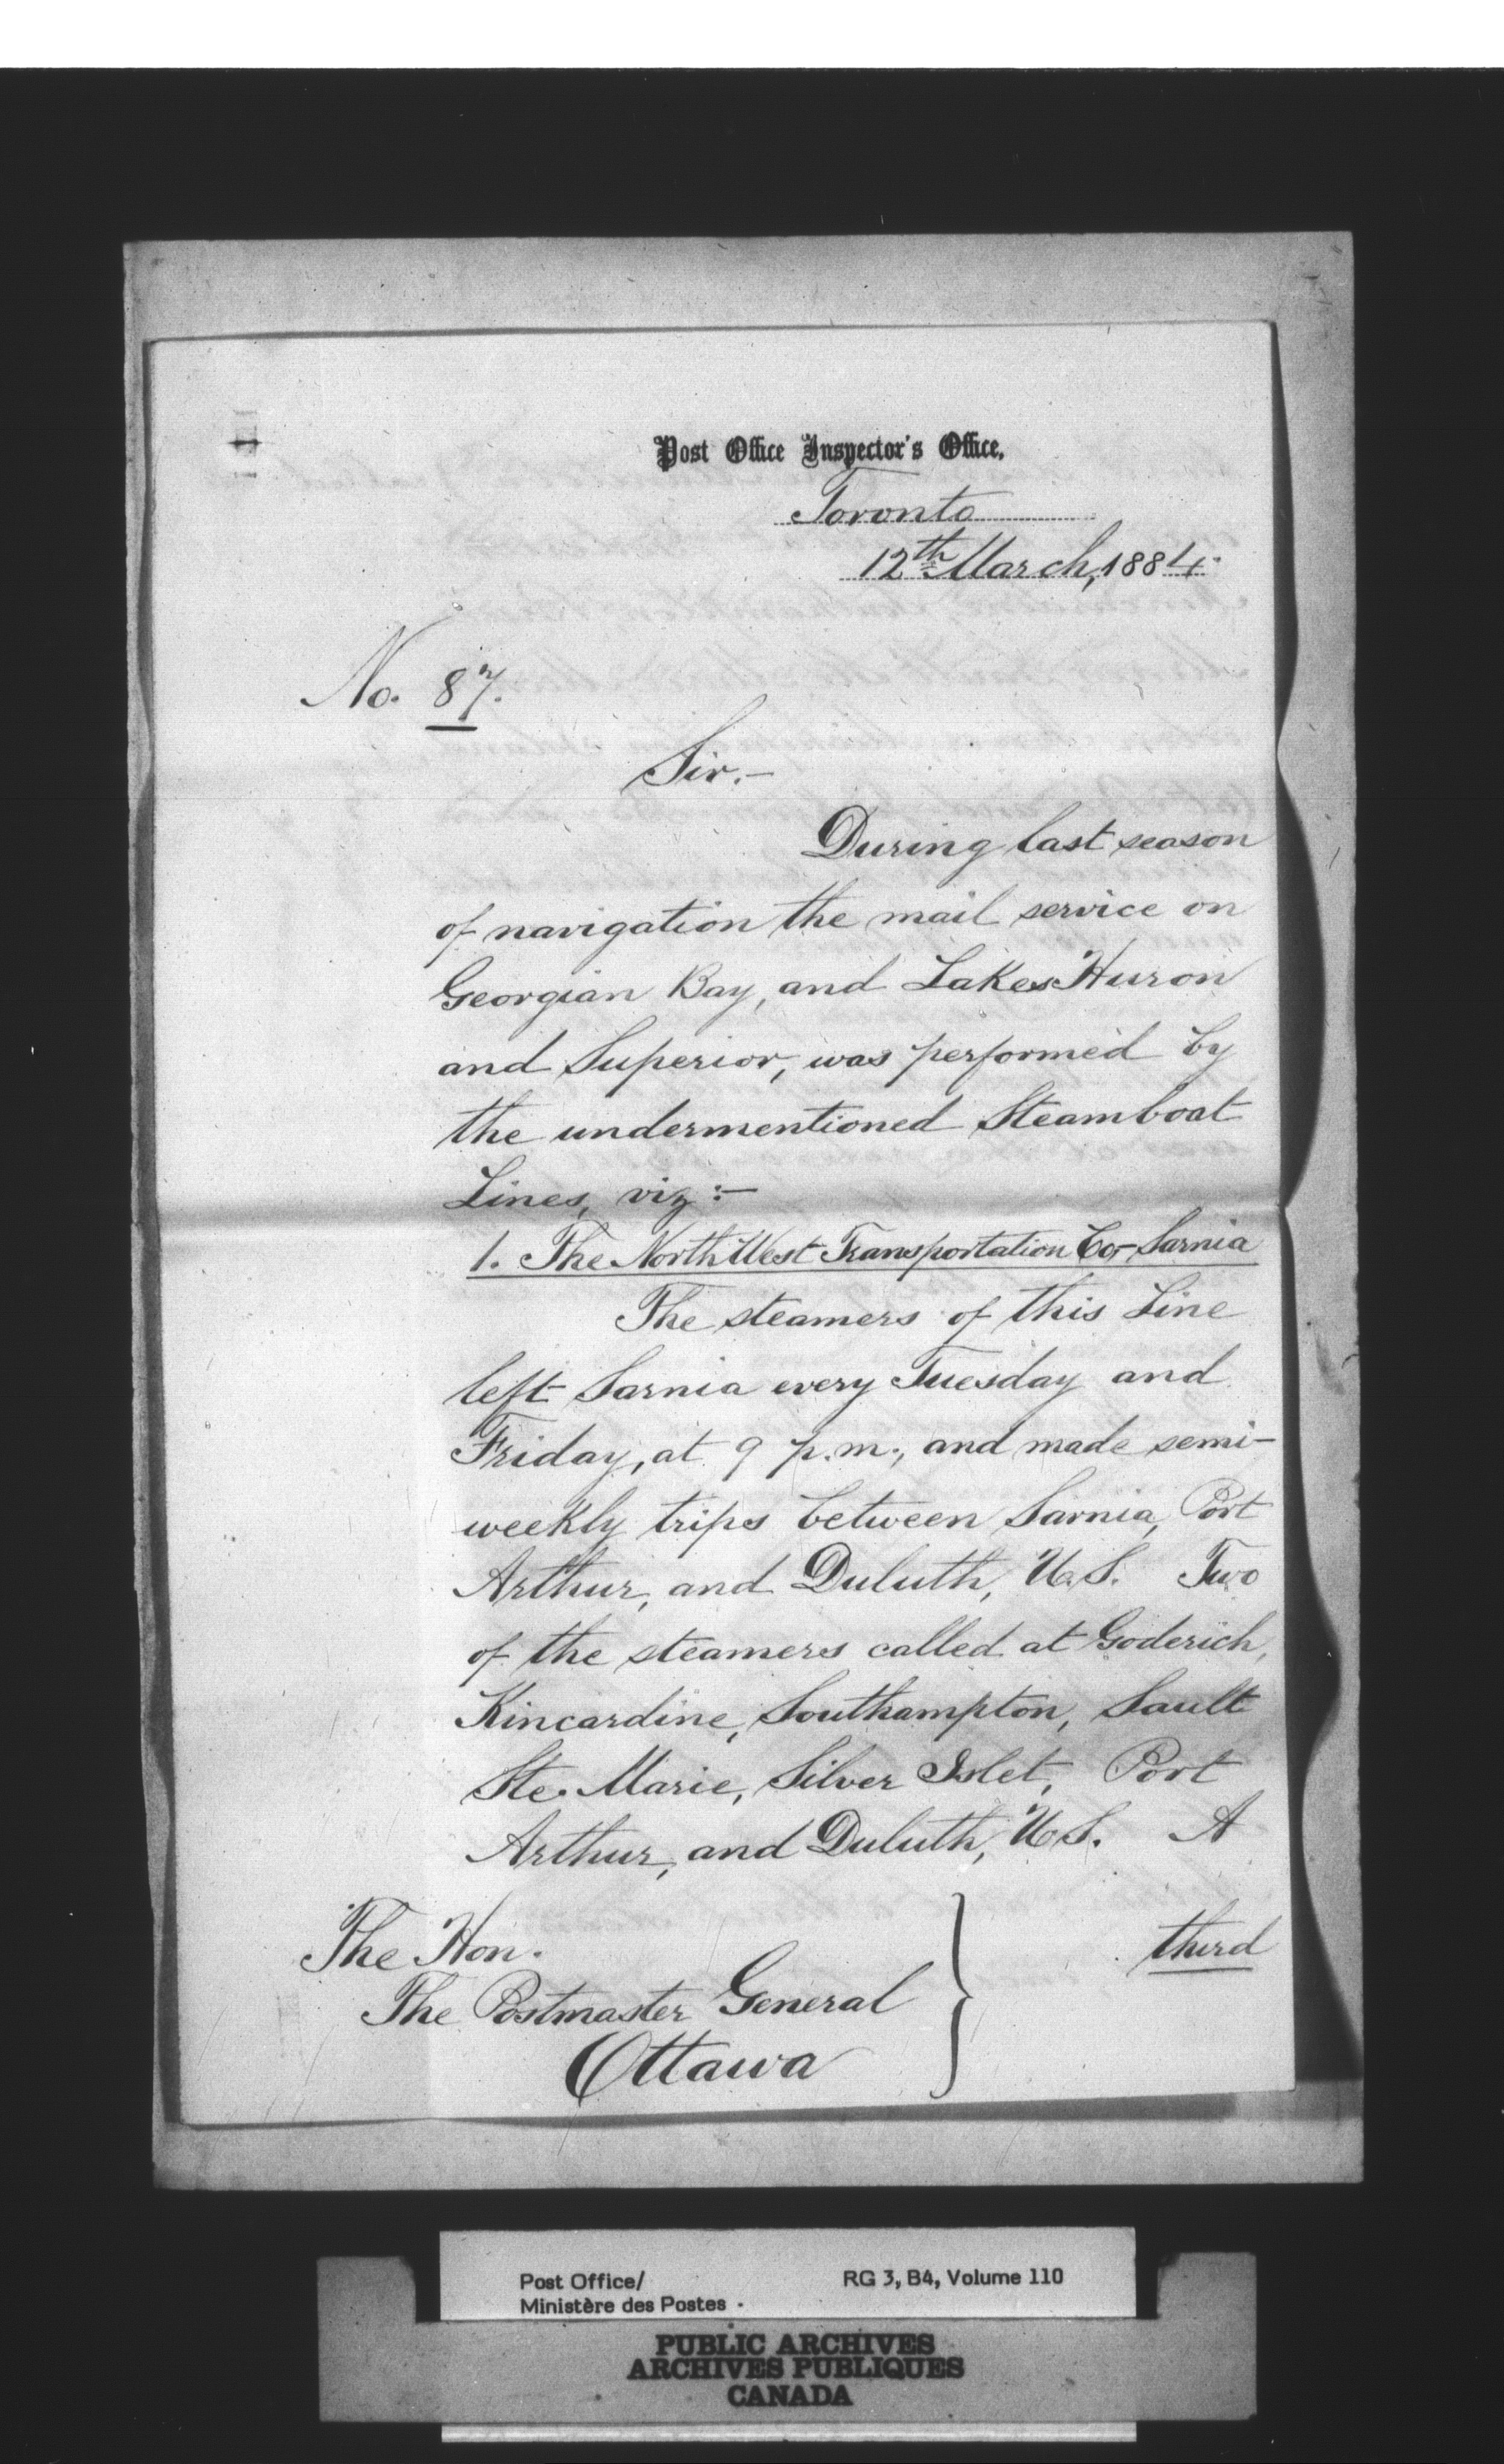 Post Office Inspector's Office,
Toronto
12th March, 1884.
No. 87.
Sir.—
During last season
of navigation the mail service on
Georgian Bay, and Lakes Huron
and Superior, was performed by
the undermentioned Steamboat
Lines, viz:—
1. The North West Transportation Co.- Sarnia
The steamers of this Line
left Sarnia every Tuesday and
Friday, at 9 p.m., and made semi-
weekly trips between Sarnia, Port
Arthur, and Duluth, U.S. Two
of the steamers called at Goderich,
Kincardine, Southampton, Sault
Ste. Marie, Silver Islet, Port
Arthur, and Duluth, U.S. A
third
The Hon.
The Postmaster General
Ottawa
Post Office/ RG 3, B4, Volume 110
Ministère des Postes
PUBLIC ARCHIVES
ARCHIVES PUBLIQUES
CANADA